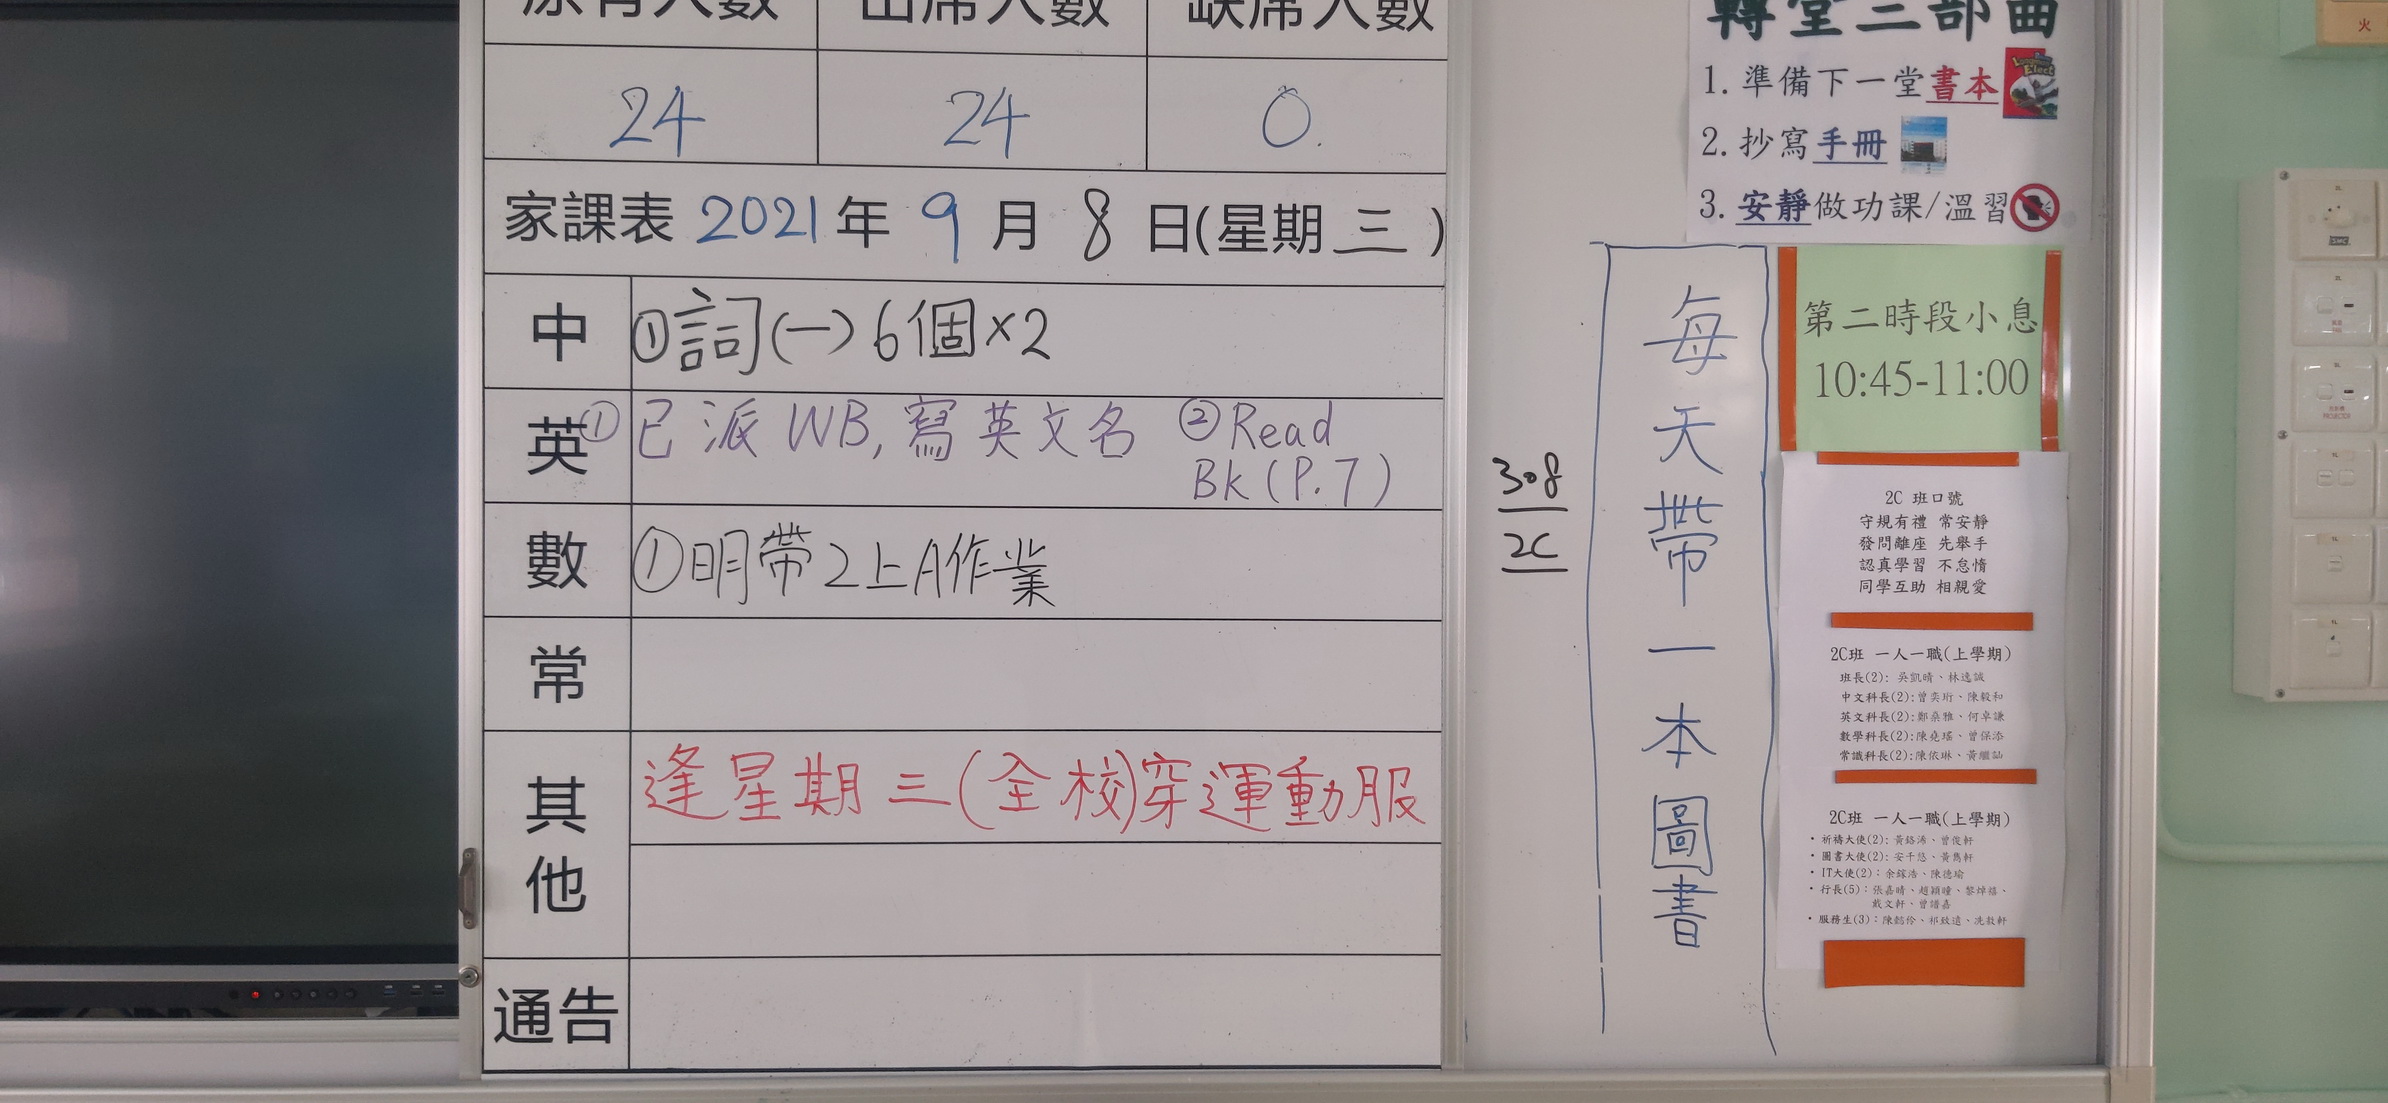 原有人數 出席人數 缺席人數
24 24 0
家課表 2021年 9月 8日(星期三)
中 ①詞(一)6個×2
英 ①已派WB,寫英文名 ②Read
Bk(P.7)
數 ①明帶2上A作業
常
其他 逢星期三(全校)穿運動服
通告
308
2C
每天帶一本圖書
轉堂三部曲
1. 準備下一堂書本
2. 抄寫手冊
3. 安靜做功課/溫習
第二時段小息
10:45-11:00
2C 班口號
守規有禮 常安靜
發問離座 先舉手
認真學習 不怠惰
同學互助 相親愛
2C班 一人一職(上學期)
班長(2): 吳凱晴、林逸誠
中文科長(2):曾奕珩、陳毅和
英文科長(2):鄭桑雅、何卓謙
數學科長(2):陳堯瑤、曾保添
常識科長(2):陳依琳、黃繼
2C班 一人一職(上學期)
• 祈禱大使(2): 黃鉻浠、曾俊軒
• 圖書大使(2): 安千悠、黃雋軒
• IT大使(2): 余鎵浩、陳德瑜
• 行長(5): 張嘉晴、趙穎曈、黎焯禧、
戴文軒、曾譜嘉
• 服務生(3): 陳懿伶、祁致遠、冼敍軒
火
PROJECTOR